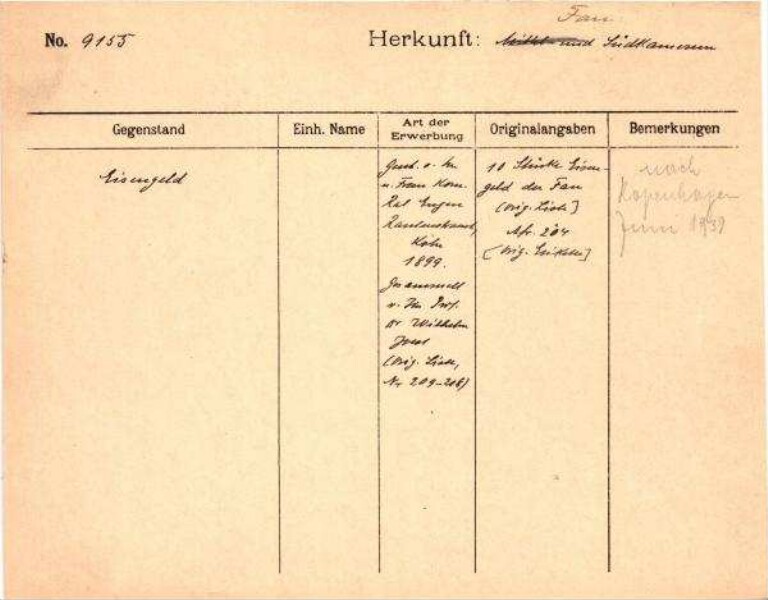 Fan
No. 9155
Herkunft: Mittel- und Südkamerun
Gegenstand
Einh. Name
Art der
Erwerbung
Originalangaben
Bemerkungen
Eisengeld
Gesch. v. Hn
u. Frau Kom.
Rat Eugen
Rautenstrauch,
Köln
1899.
Gesammelt
v. Hn Prof.
Dr Wilhelm
Joest
(Orig. Liste,
Nr 209-218)
10 Stücke Eisen-
geld der Fan
[Orig. Liste]
Afr. 204
[Orig. Etikette]
nach
Kopenhagen
Juni 1939